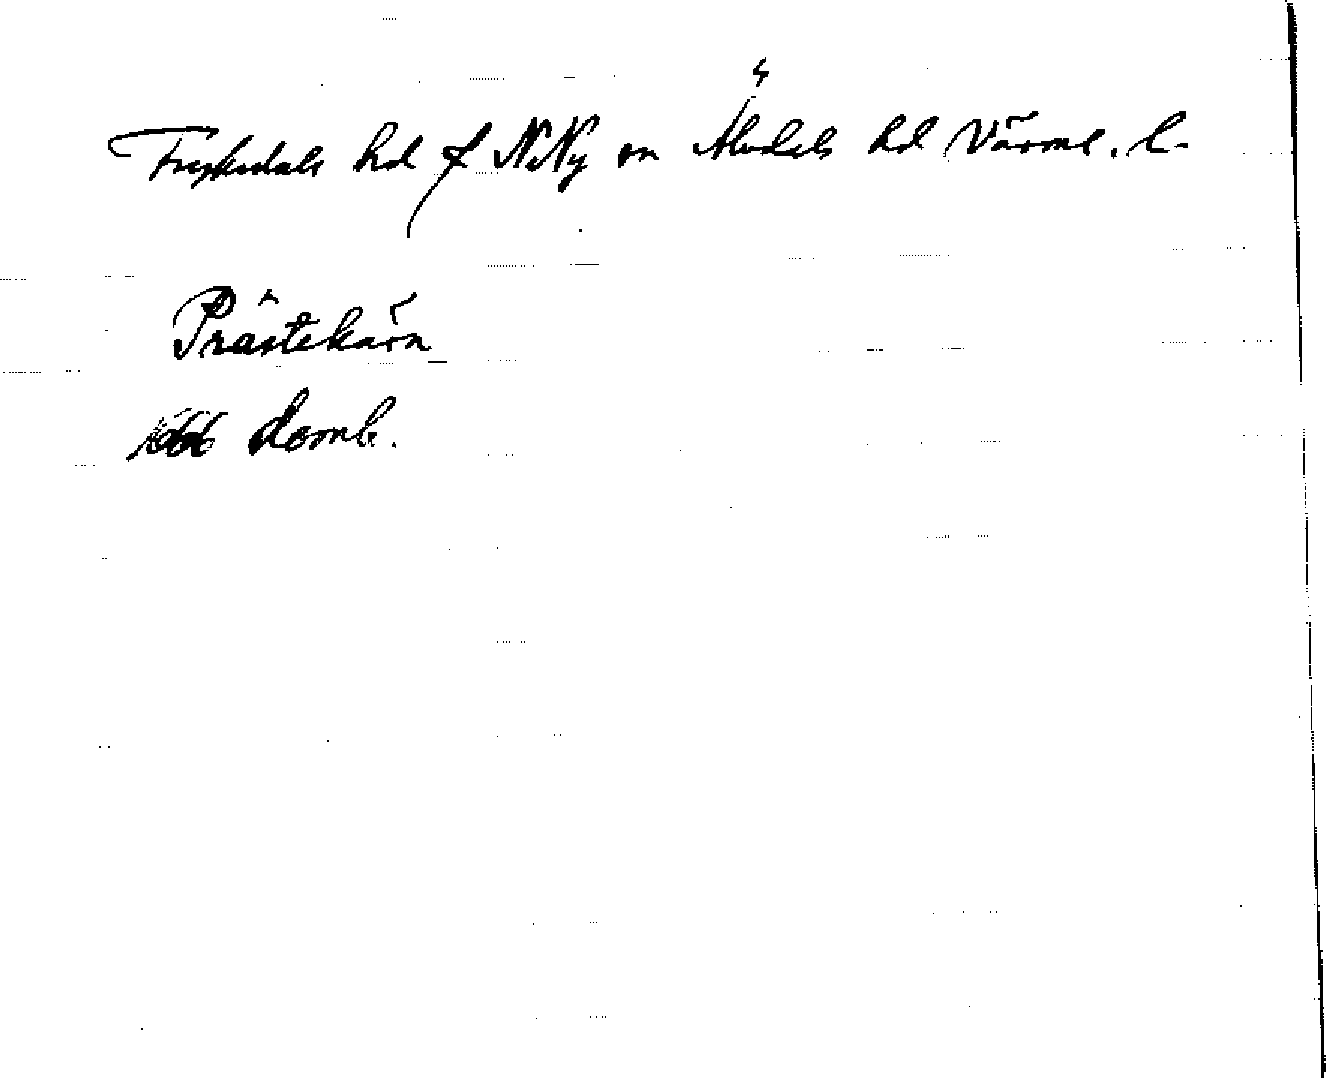 Fryksdals hd f N Ny sn Älvdals hd Värml. l.
Prästekärn
Domb.